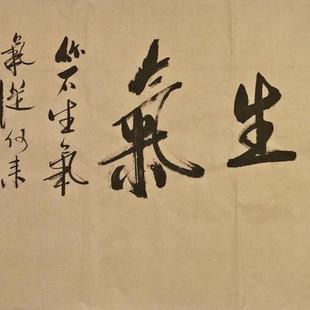 生氣
你不生氣
氣從何來